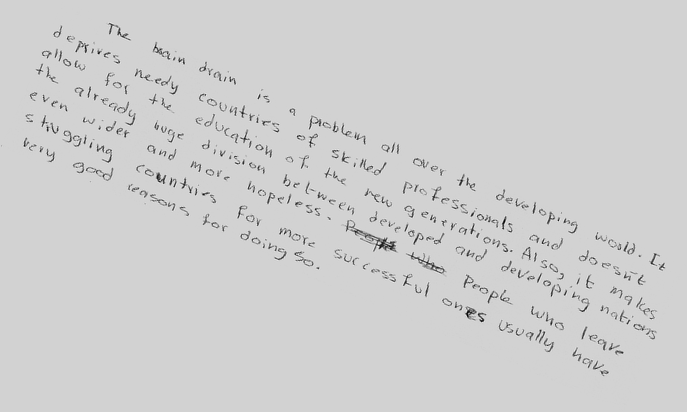 The brain drain is a problem all over the developing world. It
deprives needy countries of skilled professionals and doesn't
allow for the education of the new generations. Also, it makes
the already huge division between developed and developing nations
even wider and more hopeless. People who leave
struggling countries for more successful ones usually have
very good reasons for doing so.